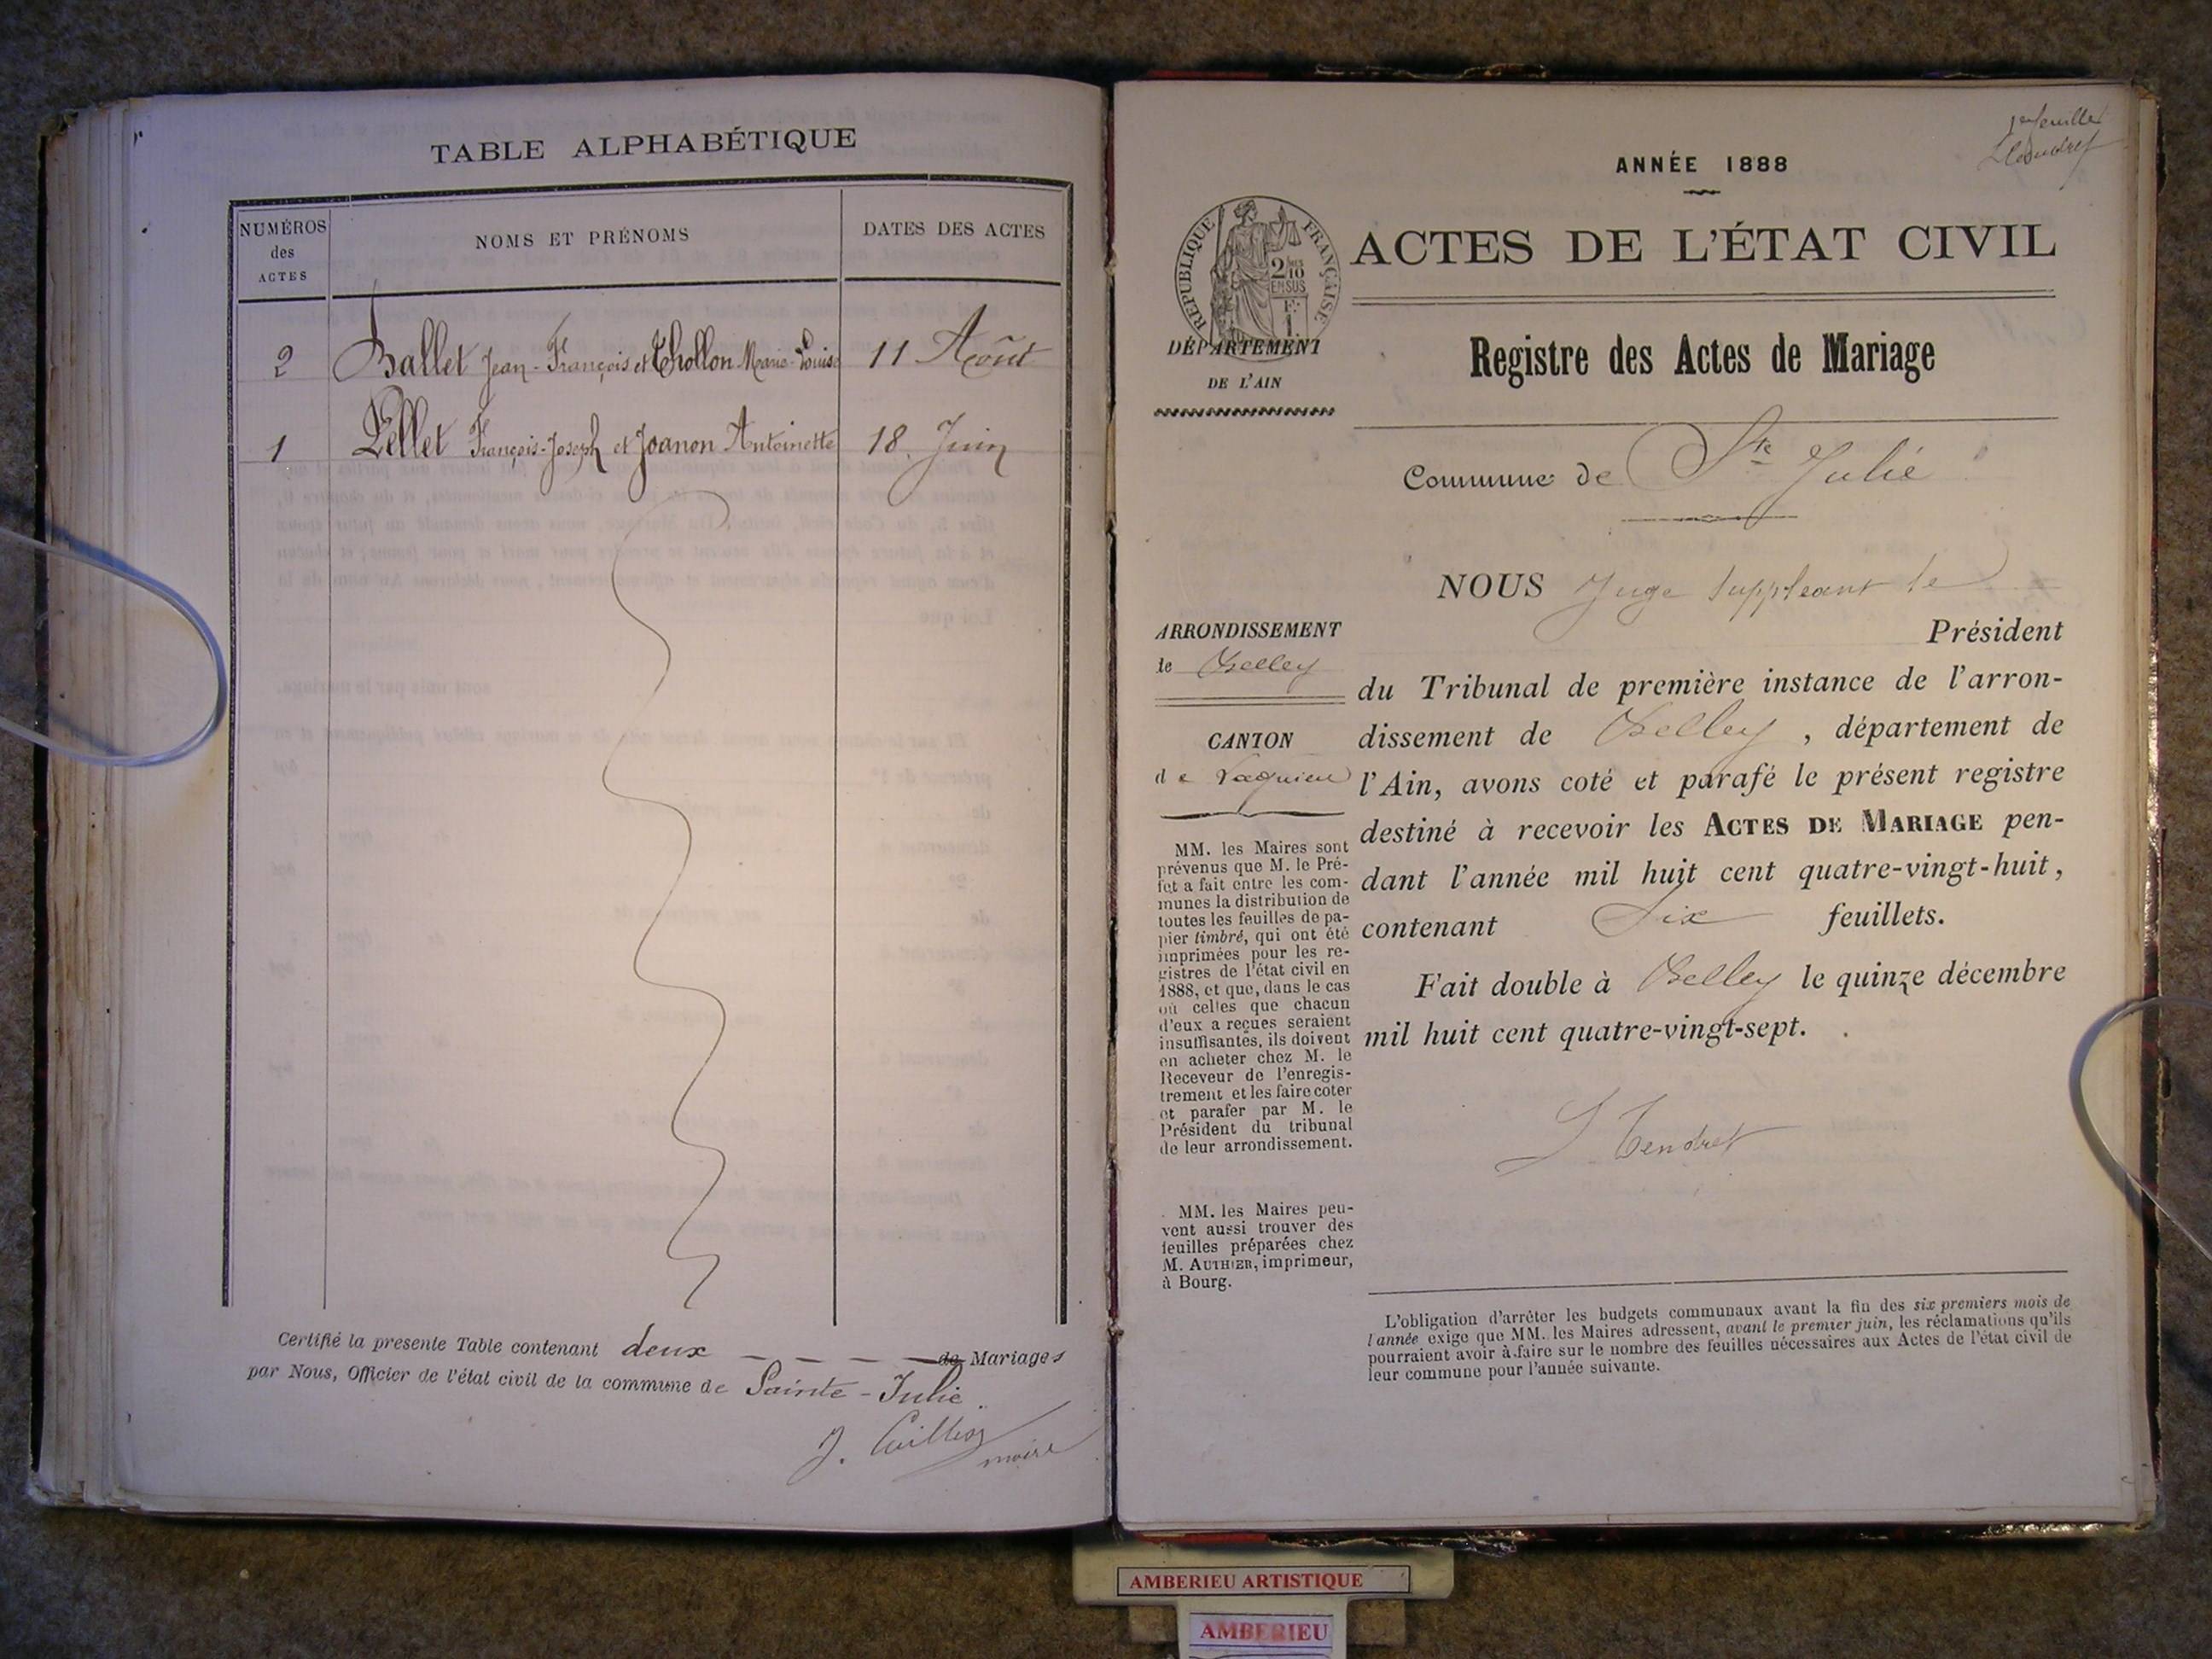 TABLE ALPHABÉTIQUE
NUMÉROS
des
ACTES
NOMS ET PRÉNOMS
DATES DES ACTES
2 Ballet Jean-François et Thollon Marie-Louise 11 Août
1 Pellet François-Joseph et Joanon Antoinette 18 Juin
Certifié la presente Table contenant deux de Mariages
par Nous, Officier de l'état civil de la commune de Sainte-Julie.
J.
maire
1er feuillet
ANNÉE 1888
RÉPUBLIQUE FRANÇAISE
2/10
EN SUS
1
ACTES DE L'ÉTAT CIVIL
DÉPARTEMENT
DE L'AIN
Registre des Actes de Mariage
Commune de Ste Julie
NOUS Juge suppléant le
Président
du Tribunal de première instance de l'arron-
dissement de Belley, département de
l'Ain, avons coté et parafé le présent registre
destiné à recevoir les ACTES DE MARIAGE pen-
dant l'année mil huit cent quatre-vingt-huit,
contenant Six feuillets.
Fait double à Belley le quinze décembre
mil huit cent quatre-vingt-sept.
Tendret
ARRONDISSEMENT
de Belley
CANTON
de Lagnieu
MM. les Maires sont
prévenus que M. le Pré-
fet a fait entre les com-
munes la distribution de
toutes les feuilles de pa-
pier timbré, qui ont été
imprimées pour les re-
gistres de l'état civil en
1888, et que, dans le cas
où celles que chacun
d'eux a reçues seraient
insuffisantes, ils doivent
en acheter chez M. le
Receveur de l'enregis-
trement et les faire coter
et parafer par M. le
Président du tribunal
de leur arrondissement.
MM. les Maires peu-
vent aussi trouver des
feuilles préparées chez
M. AUTHIER, imprimeur,
à Bourg.
L'obligation d'arrêter les budgets communaux avant la fin des six premiers mois de
l'année exige que MM. les Maires adressent, avant le premier juin, les réclamations qu'ils
pourraient avoir à faire sur le nombre des feuilles nécessaires aux Actes de l'état civil de
leur commune pour l'année suivante.
AMBERIEU ARTISTIQUE
AMBERIEU